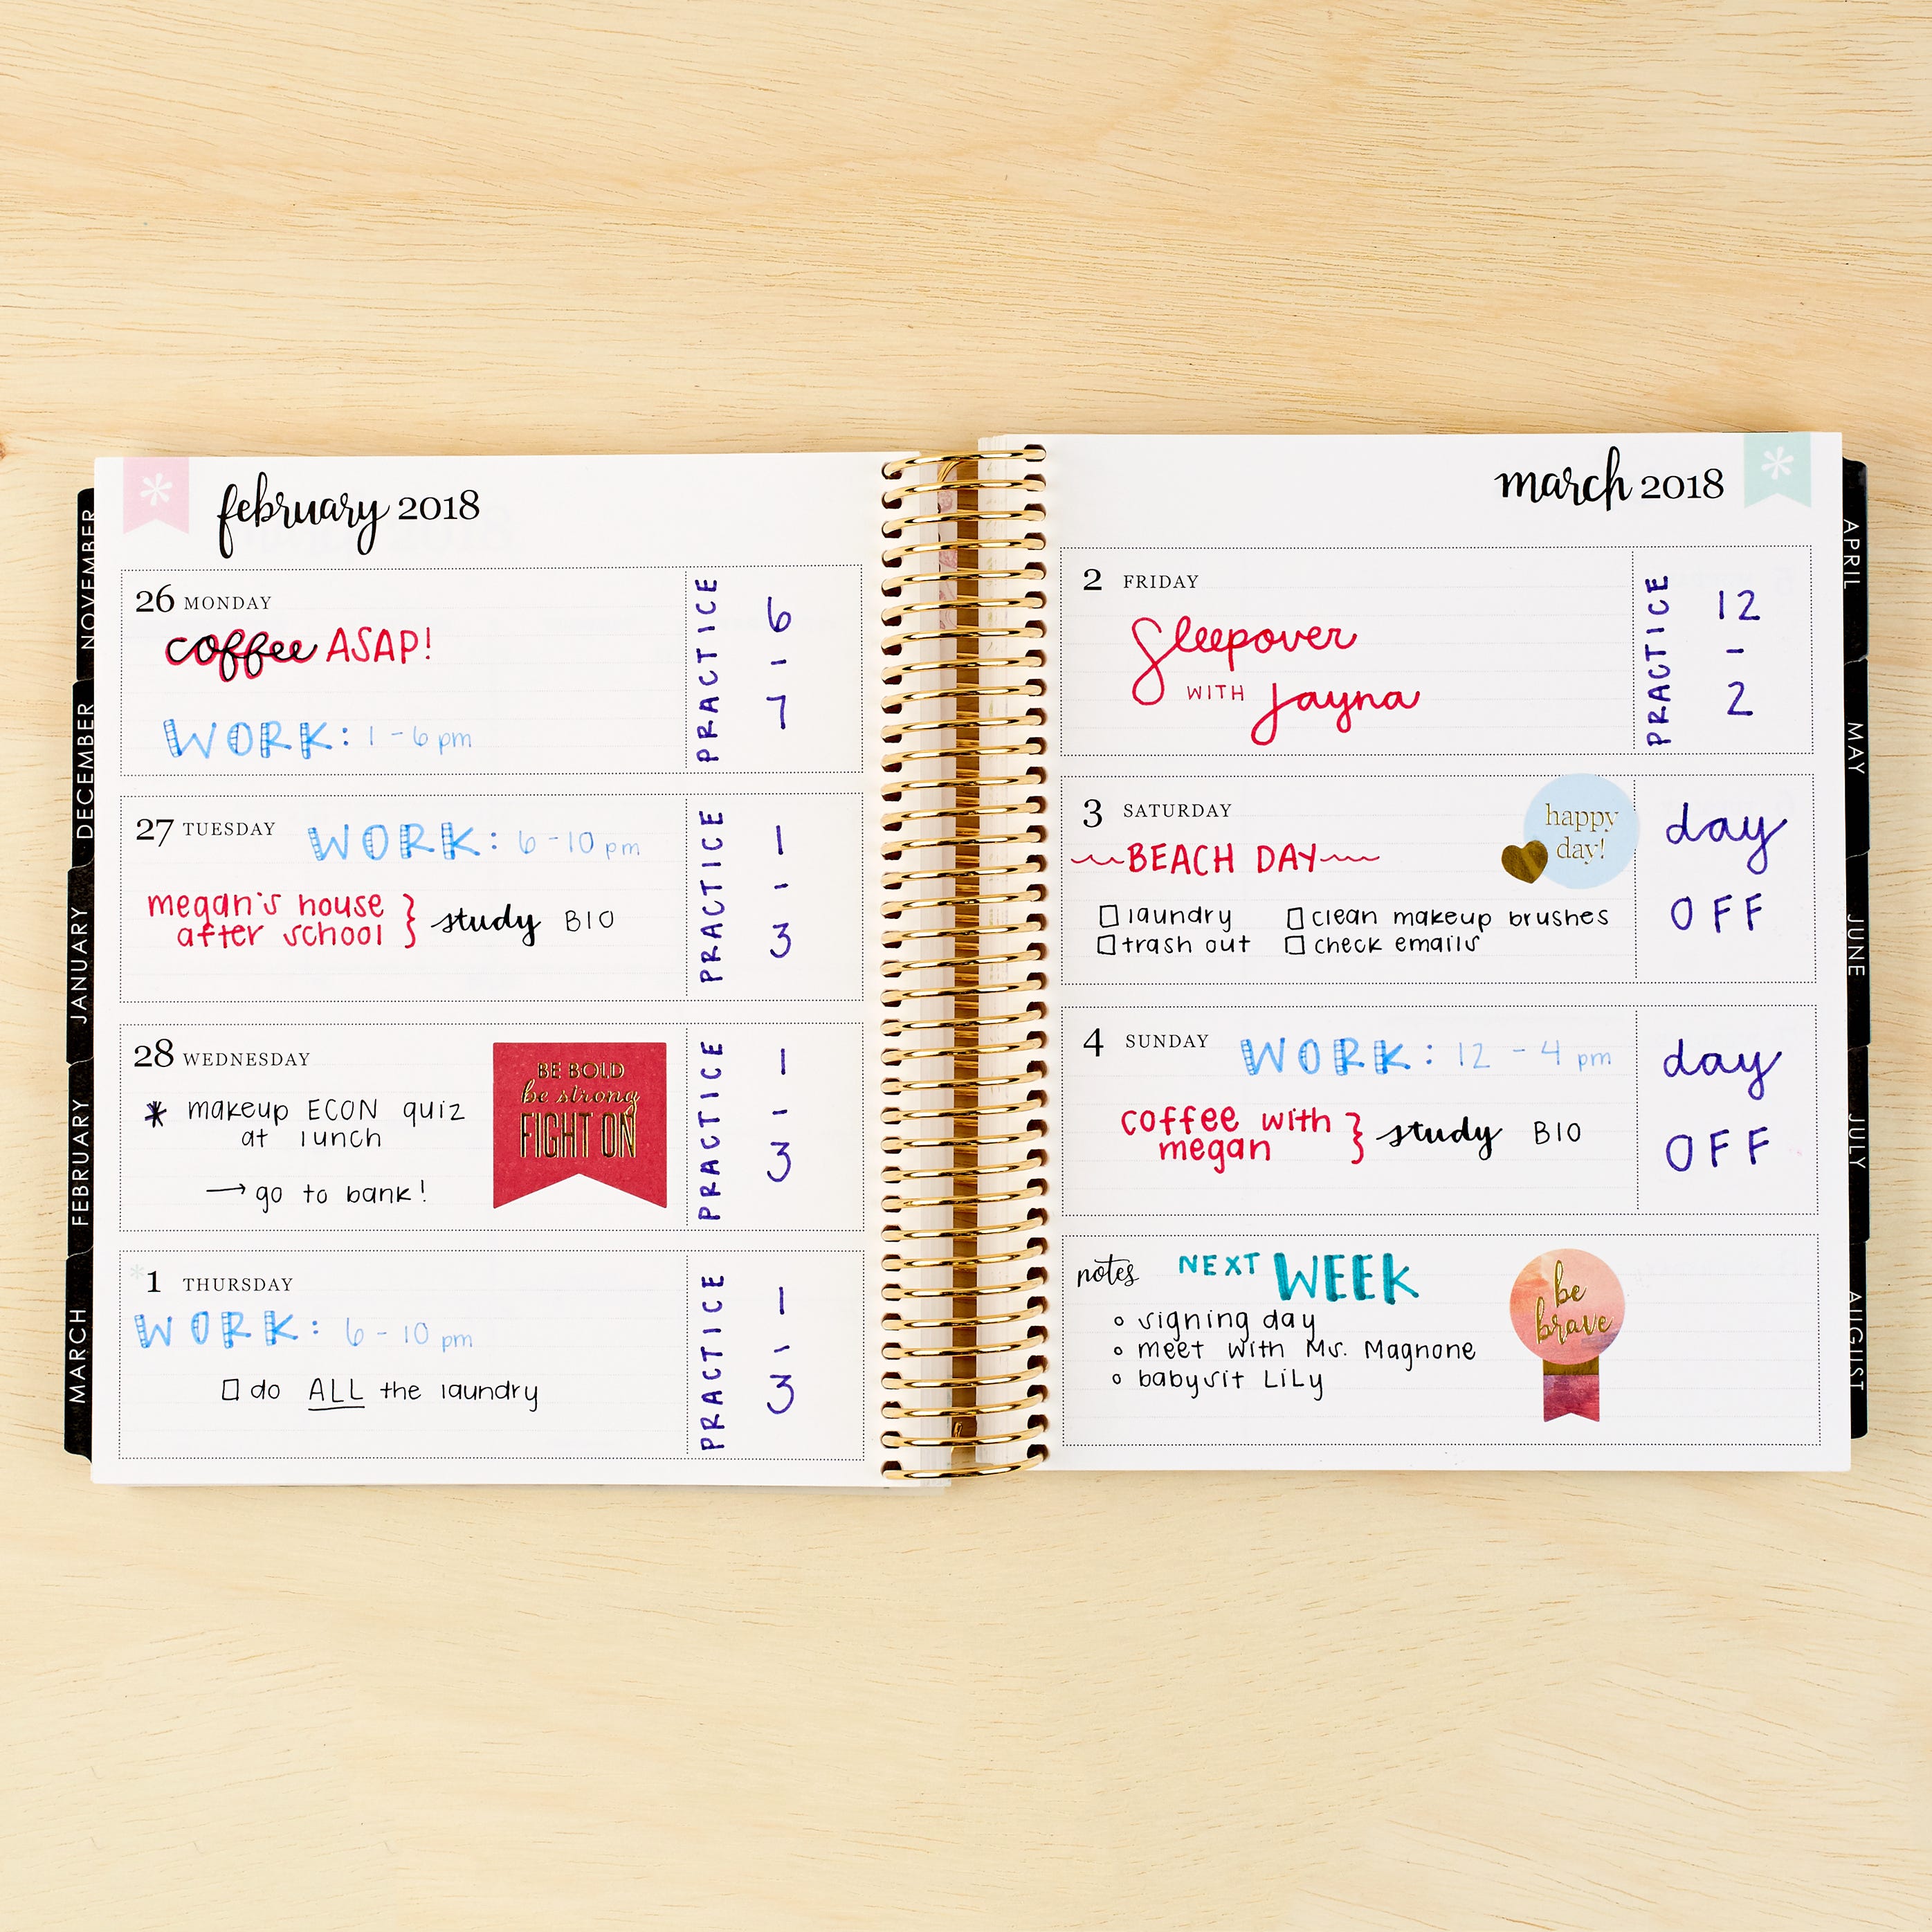 february 2018
26 MONDAY
coffee ASAP!
WORK: 1-6 pm
PRACTICE
6
-
7
27 TUESDAY
WORK: 6-10 pm
megan's house
after school } study BIO
PRACTICE
1
-
3
28 WEDNESDAY
* makeup ECON quiz
at lunch
→ go to bank!
BE BOLD
be strong
FIGHT ON
PRACTICE
1
-
3
*1 THURSDAY
WORK: 6-10 pm
do ALL the laundry
PRACTICE
1
-
3
NOVEMBER
DECEMBER
JANUARY
FEBRUARY
MARCH
march 2018
2 FRIDAY
Sleepover
WITH Jayna
PRACTICE
12
-
2
3 SATURDAY
BEACH DAY
happy
day!
laundry
clean makeup brushes
trash out
check emails
day
OFF
4 SUNDAY
WORK: 12 - 4 pm
coffee with
megan } study BIO
day
OFF
notes
NEXT WEEK
signing day
meet with Ms. Magnone
babysit LiLy
be
brave
APRIL
MAY
JUNE
JULY
AUGUST